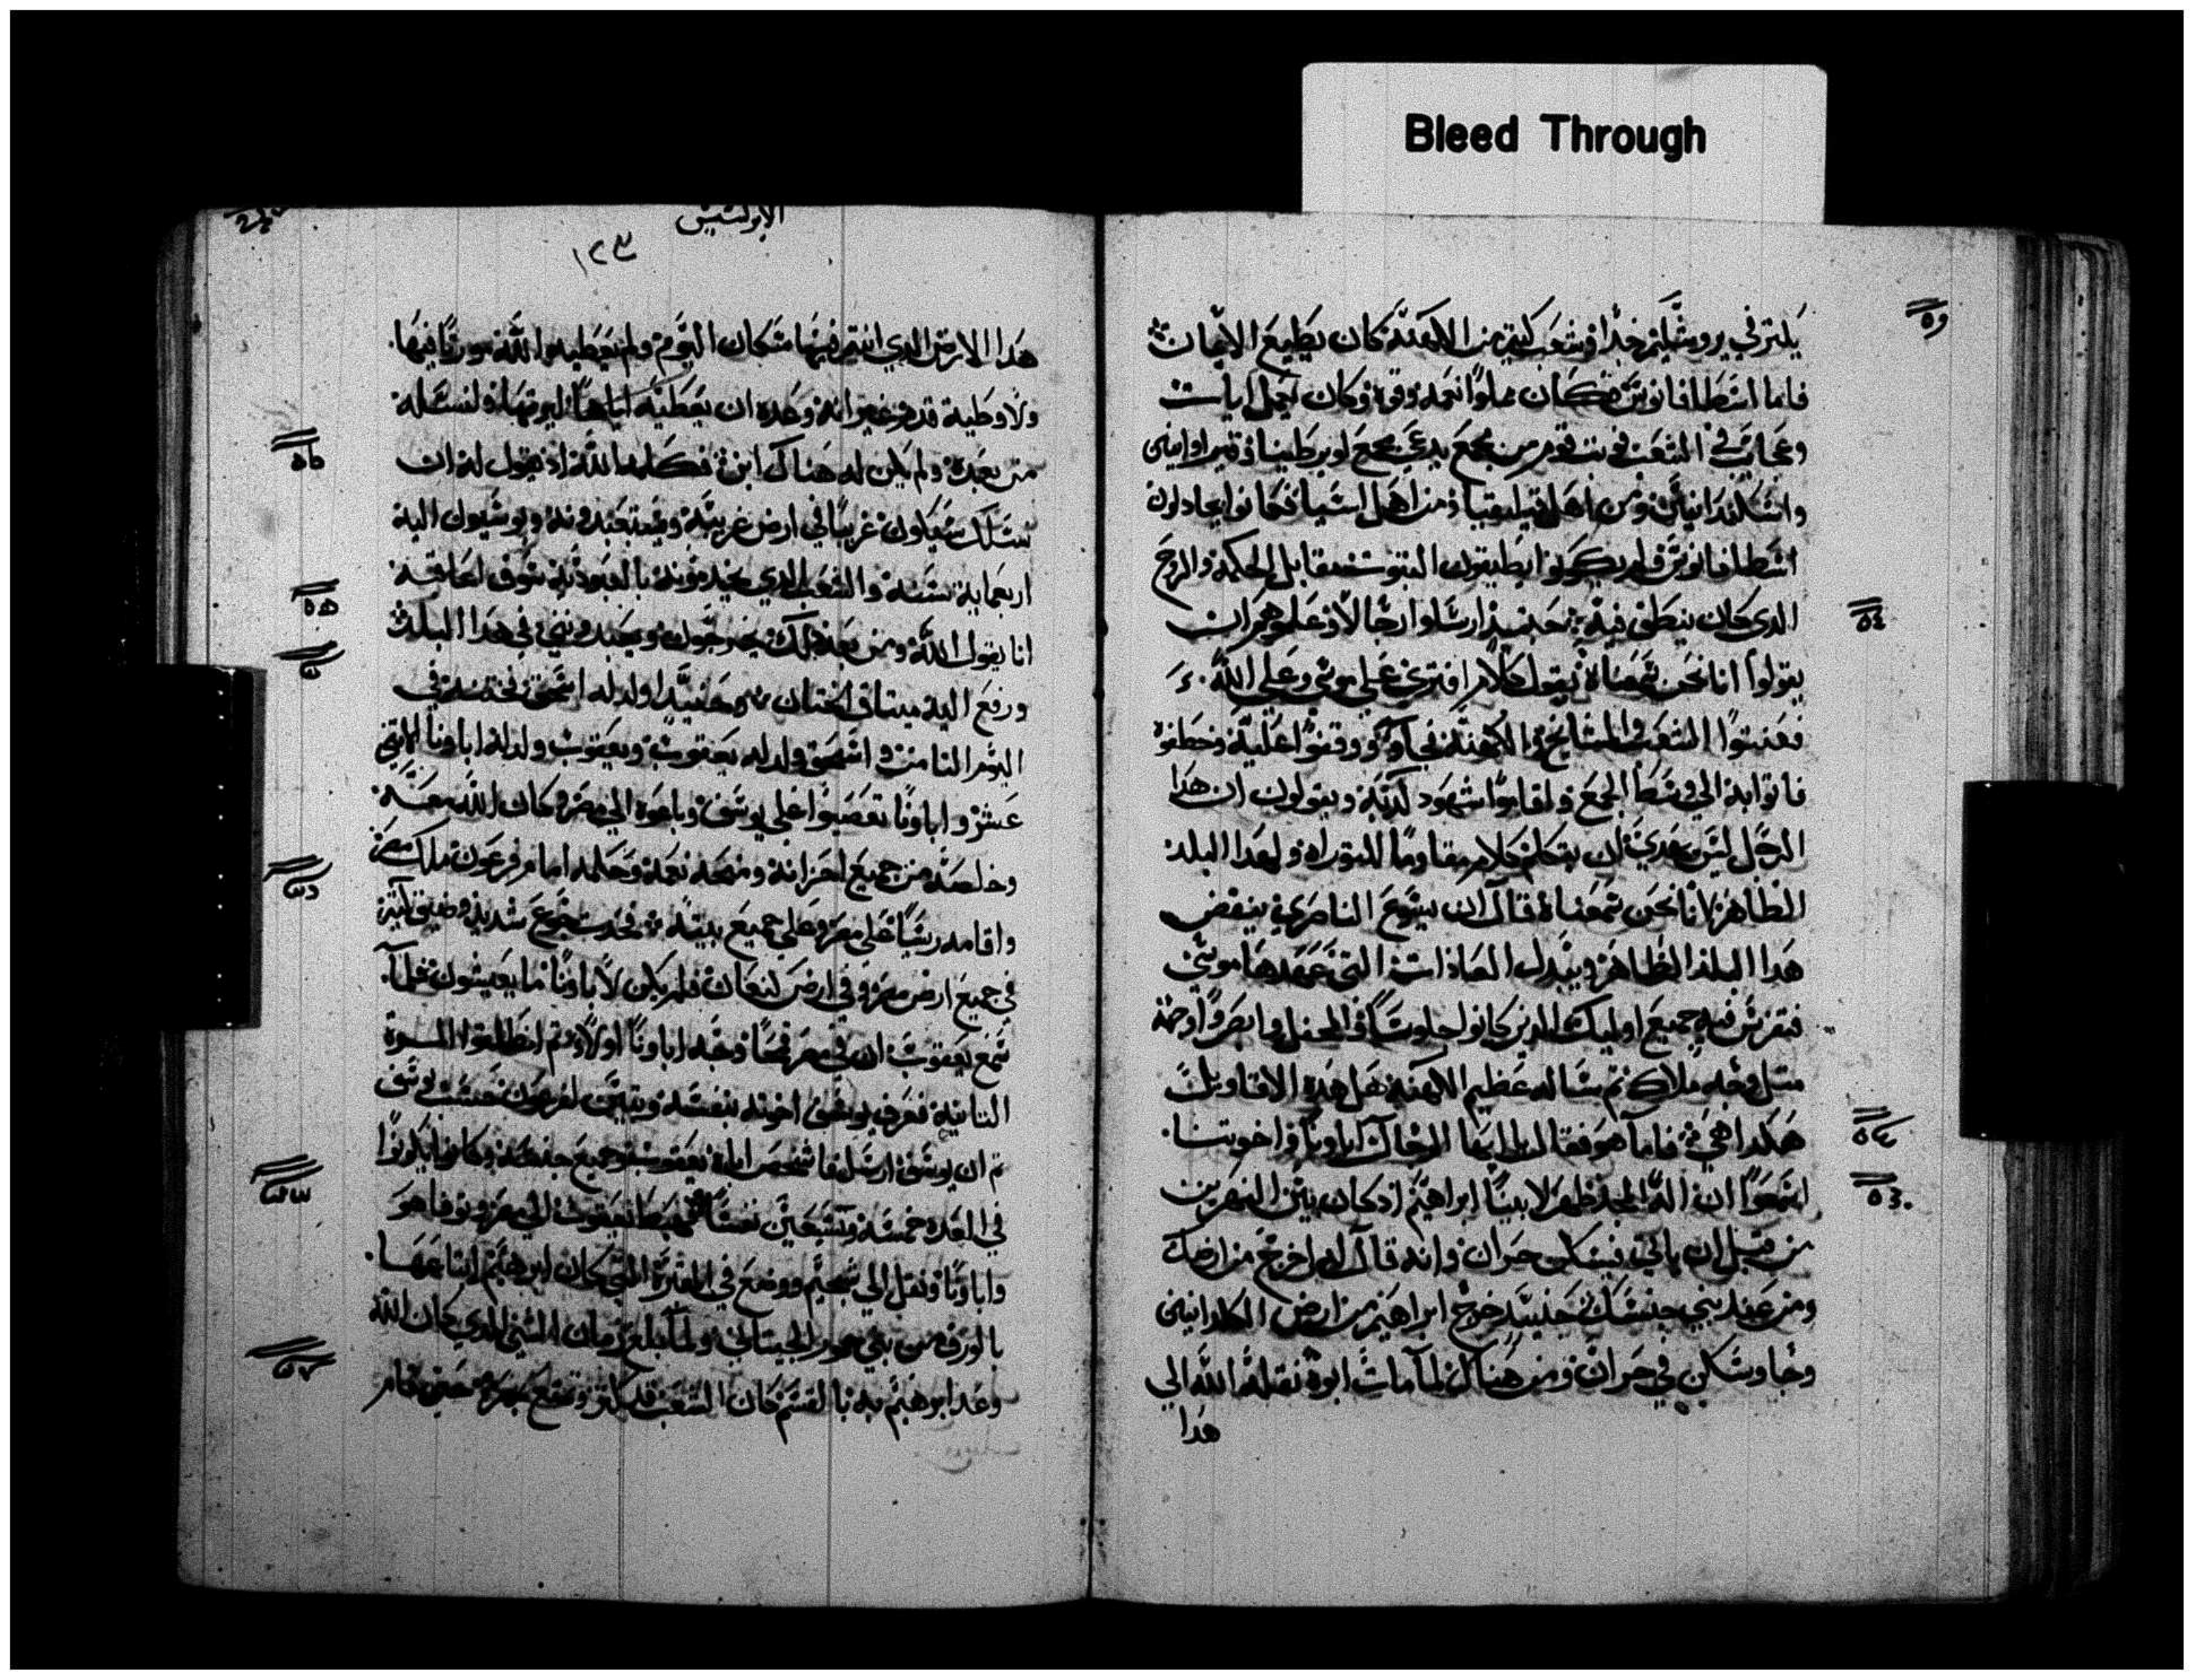 Bleed Through
يكثر في يروشليم جدا وشعب كثير من الكهنة كان يطيع الايمان
فاما اسطافانوس فكان مملوا نعمه وقوه وكان يعمل ايات
وعجايب في الشعب فوثب قوم من مجمع يدعي مجمع لوبرطينا وقيراوانيين
واسكندرانيين ومن اهل قيليقيا ومن اهل اسيا فكانوا يجادلون
اسطافانوس فلم يكونوا يطيقون الثبوت مقابل الحكمه والروح
الذي كان ينطق فيه حينيذ ارسلوا رجالا وعلموهم ان
يقولوا انا نحن سمعناه يقول كلام افتري علي موسي وعلي الله
ففتنوا الشعب والمشايخ والكهنه فجاوو ووقفوا عليه وخطفوه
فاتوا به الي وسط الجمع واقاموا شهود كدبه ويقولون ان هدا
الرجل ليس يهدي ان يتكلم كلام مقاوما للتوراه ولهدا البلد
الطاهر لانا نحن سمعناه قال ان يسوع الناصري ينقض
هدا البلد الطاهر ويبدل العادات التي عهدها موسي
فتفرس فيه جميع اوليك الدين كانوا جلوسا في المحفل وابصروا وجهه
متل وجه ملاك تم ساله عظيم الكهنه هل هده الاقاويل
هكدا هي فاما هو فقال لهم ايها الرجال اباونا واخوتنا
اسمعوا ان اله المجد ظهر لابينا ابراهيم اد كان بين النهرين
من قبل ان ياتي فيسكن حران وانه قال له اخرج من ارضك
ومن عند بني جنسك حينيد خرج ابراهيم من ارض الكلدانيين
وجا وسكن في حران ومن هناك لما مات ابوه نقله الله الي
هدا
الابركسيس
١٢٣
هدا الارض الدي انتم فيها سكان اليوم ولم يعطيه الله موررثا فيها
ولا وطية قدم غير انه وعده ان يعطيه اياها ليرتها ولنسله
من بعده ولم يكن له هناك ابن فكلمه الله اد يقول له ان
نسلك سيكون غريبا في ارض غريبه ويستعبدونه ويوسيون اليه
اربعماية سنه والشعب الدي يخدمونه بالعبوديه سوف اعاقبه
انا يقول الله ومن بعد دلك يخرجون ويعبدونني في هدا البلد
ورفع اليه ميتاق الختان وحينيد اولد له اسحق فختنه في
اليوم التامن واسحق ولد له يعقوب ويعقوب ولد له اباونا الاتني
عشر واباونا تعصبوا علي يوسف وباعوه الي مصر وكان الله معه
وخلصه من جميع احزانه ومنحه نعمه وحكمه امام فرعون ملك مصر
واقامه ريسا علي مصر وعلي جميع بيته فحدت جوع شديد وضيق كتير
في جميع ارض مصر وفي ارض كنعان فلم يكن لاباونا ما يعيشون فلما
سمع يعقوب ان في مصر قمحا وجه اباونا اولا وتم انطلقوا المره
التانيه فعرف يوسف اخوته بنفسه وتبين لفرعون جنس يوسف
تم ان يوسف ارسل فاشخص اباه يعقوب وجميع جنسه وكانوا يكونوا
في العده خمسه وسبعين نفسا فهبط يعقوب الي مصر وتوفا هو
واباونا ونقل الي شخيم ووضع في المقبره التي كان ابرهيم ابتاعها
بالورق من بني حمور ولما بلغ زمان الشي الدي كان الله
وعد ابرهيم به بالقسم كان الشعب قد كتر وتمنع بمصر حين قام